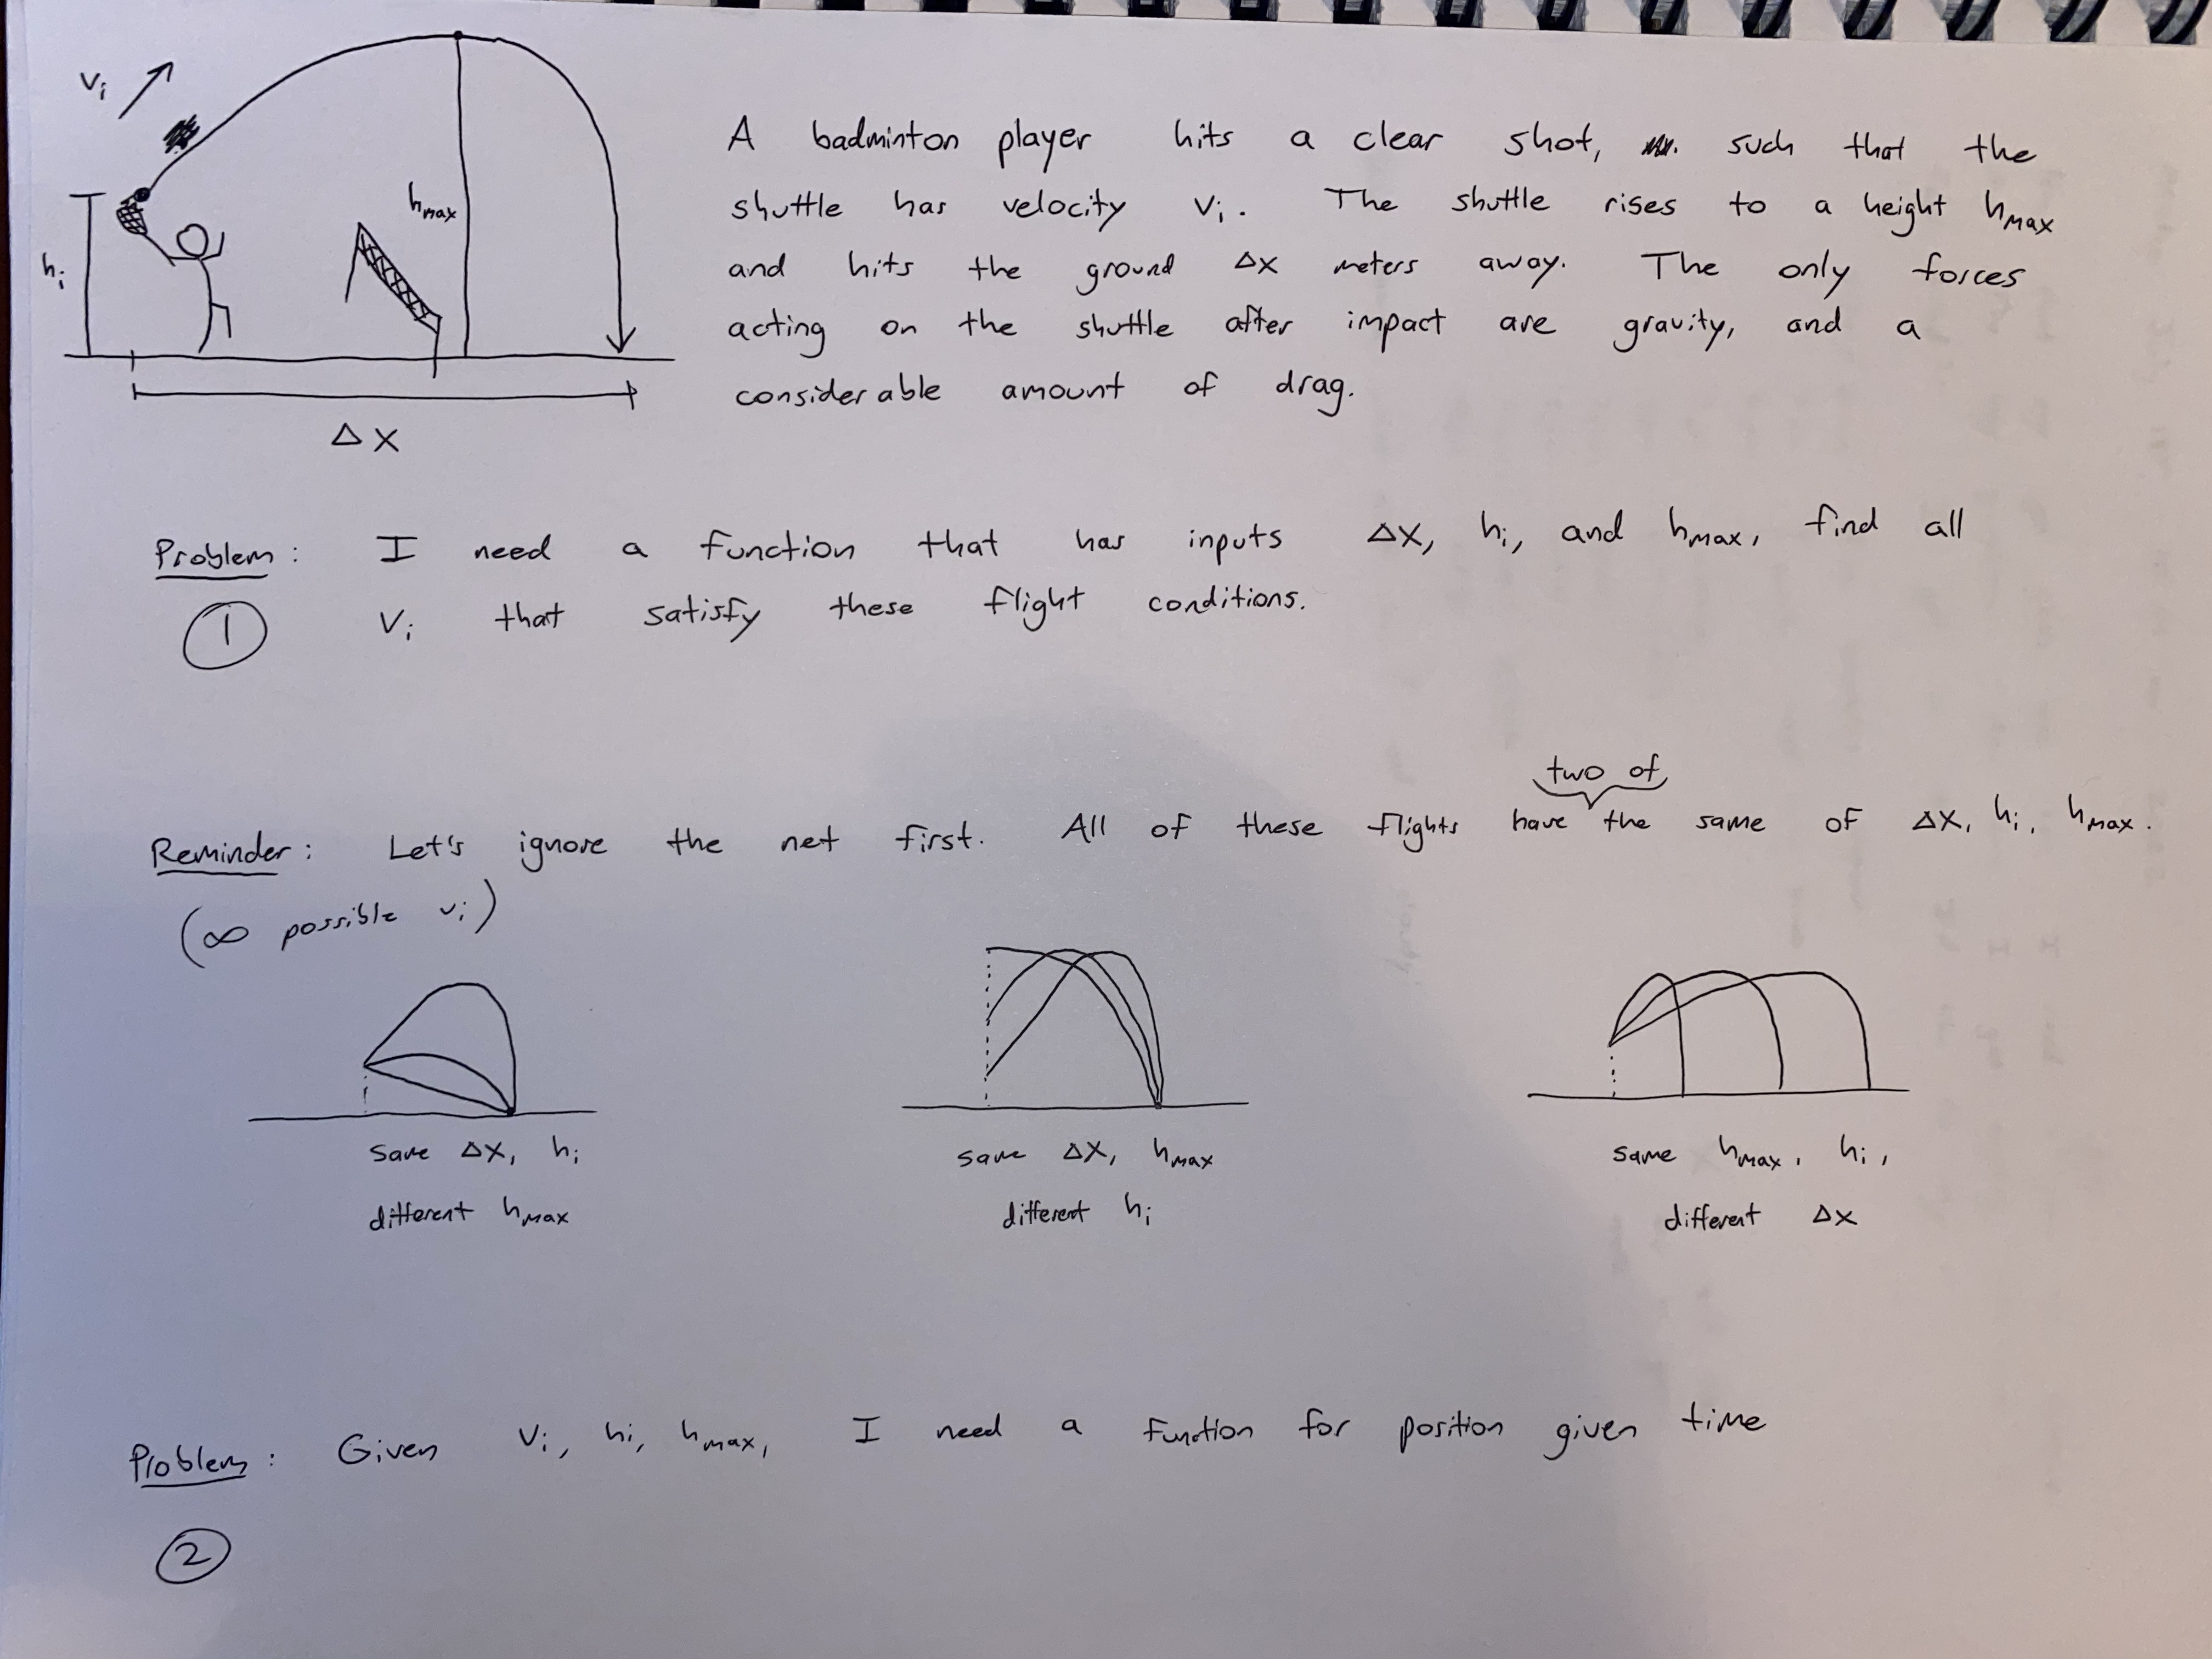 Vi
hi
hmax
Δx
A badminton player hits a clear shot, such that the
shuttle has velocity Vi. The shuttle rises to a height hmax
and hits the ground Δx meters away. The only forces
acting on the shuttle after impact are gravity, and a
considerable amount of drag.
Problem: I need a function that has inputs Δx, hi, and hmax, find all
① Vi that satisfy these flight conditions.
two of
Reminder: Let's ignore the net first. All of these flights have the same of Δx, hi, hmax.
(∞ possible vi)
same Δx, hi
different hmax
same Δx, hmax
different hi
same hmax, hi,
different Δx
Problem: Given Vi, hi, hmax, I need a function for position given time
②